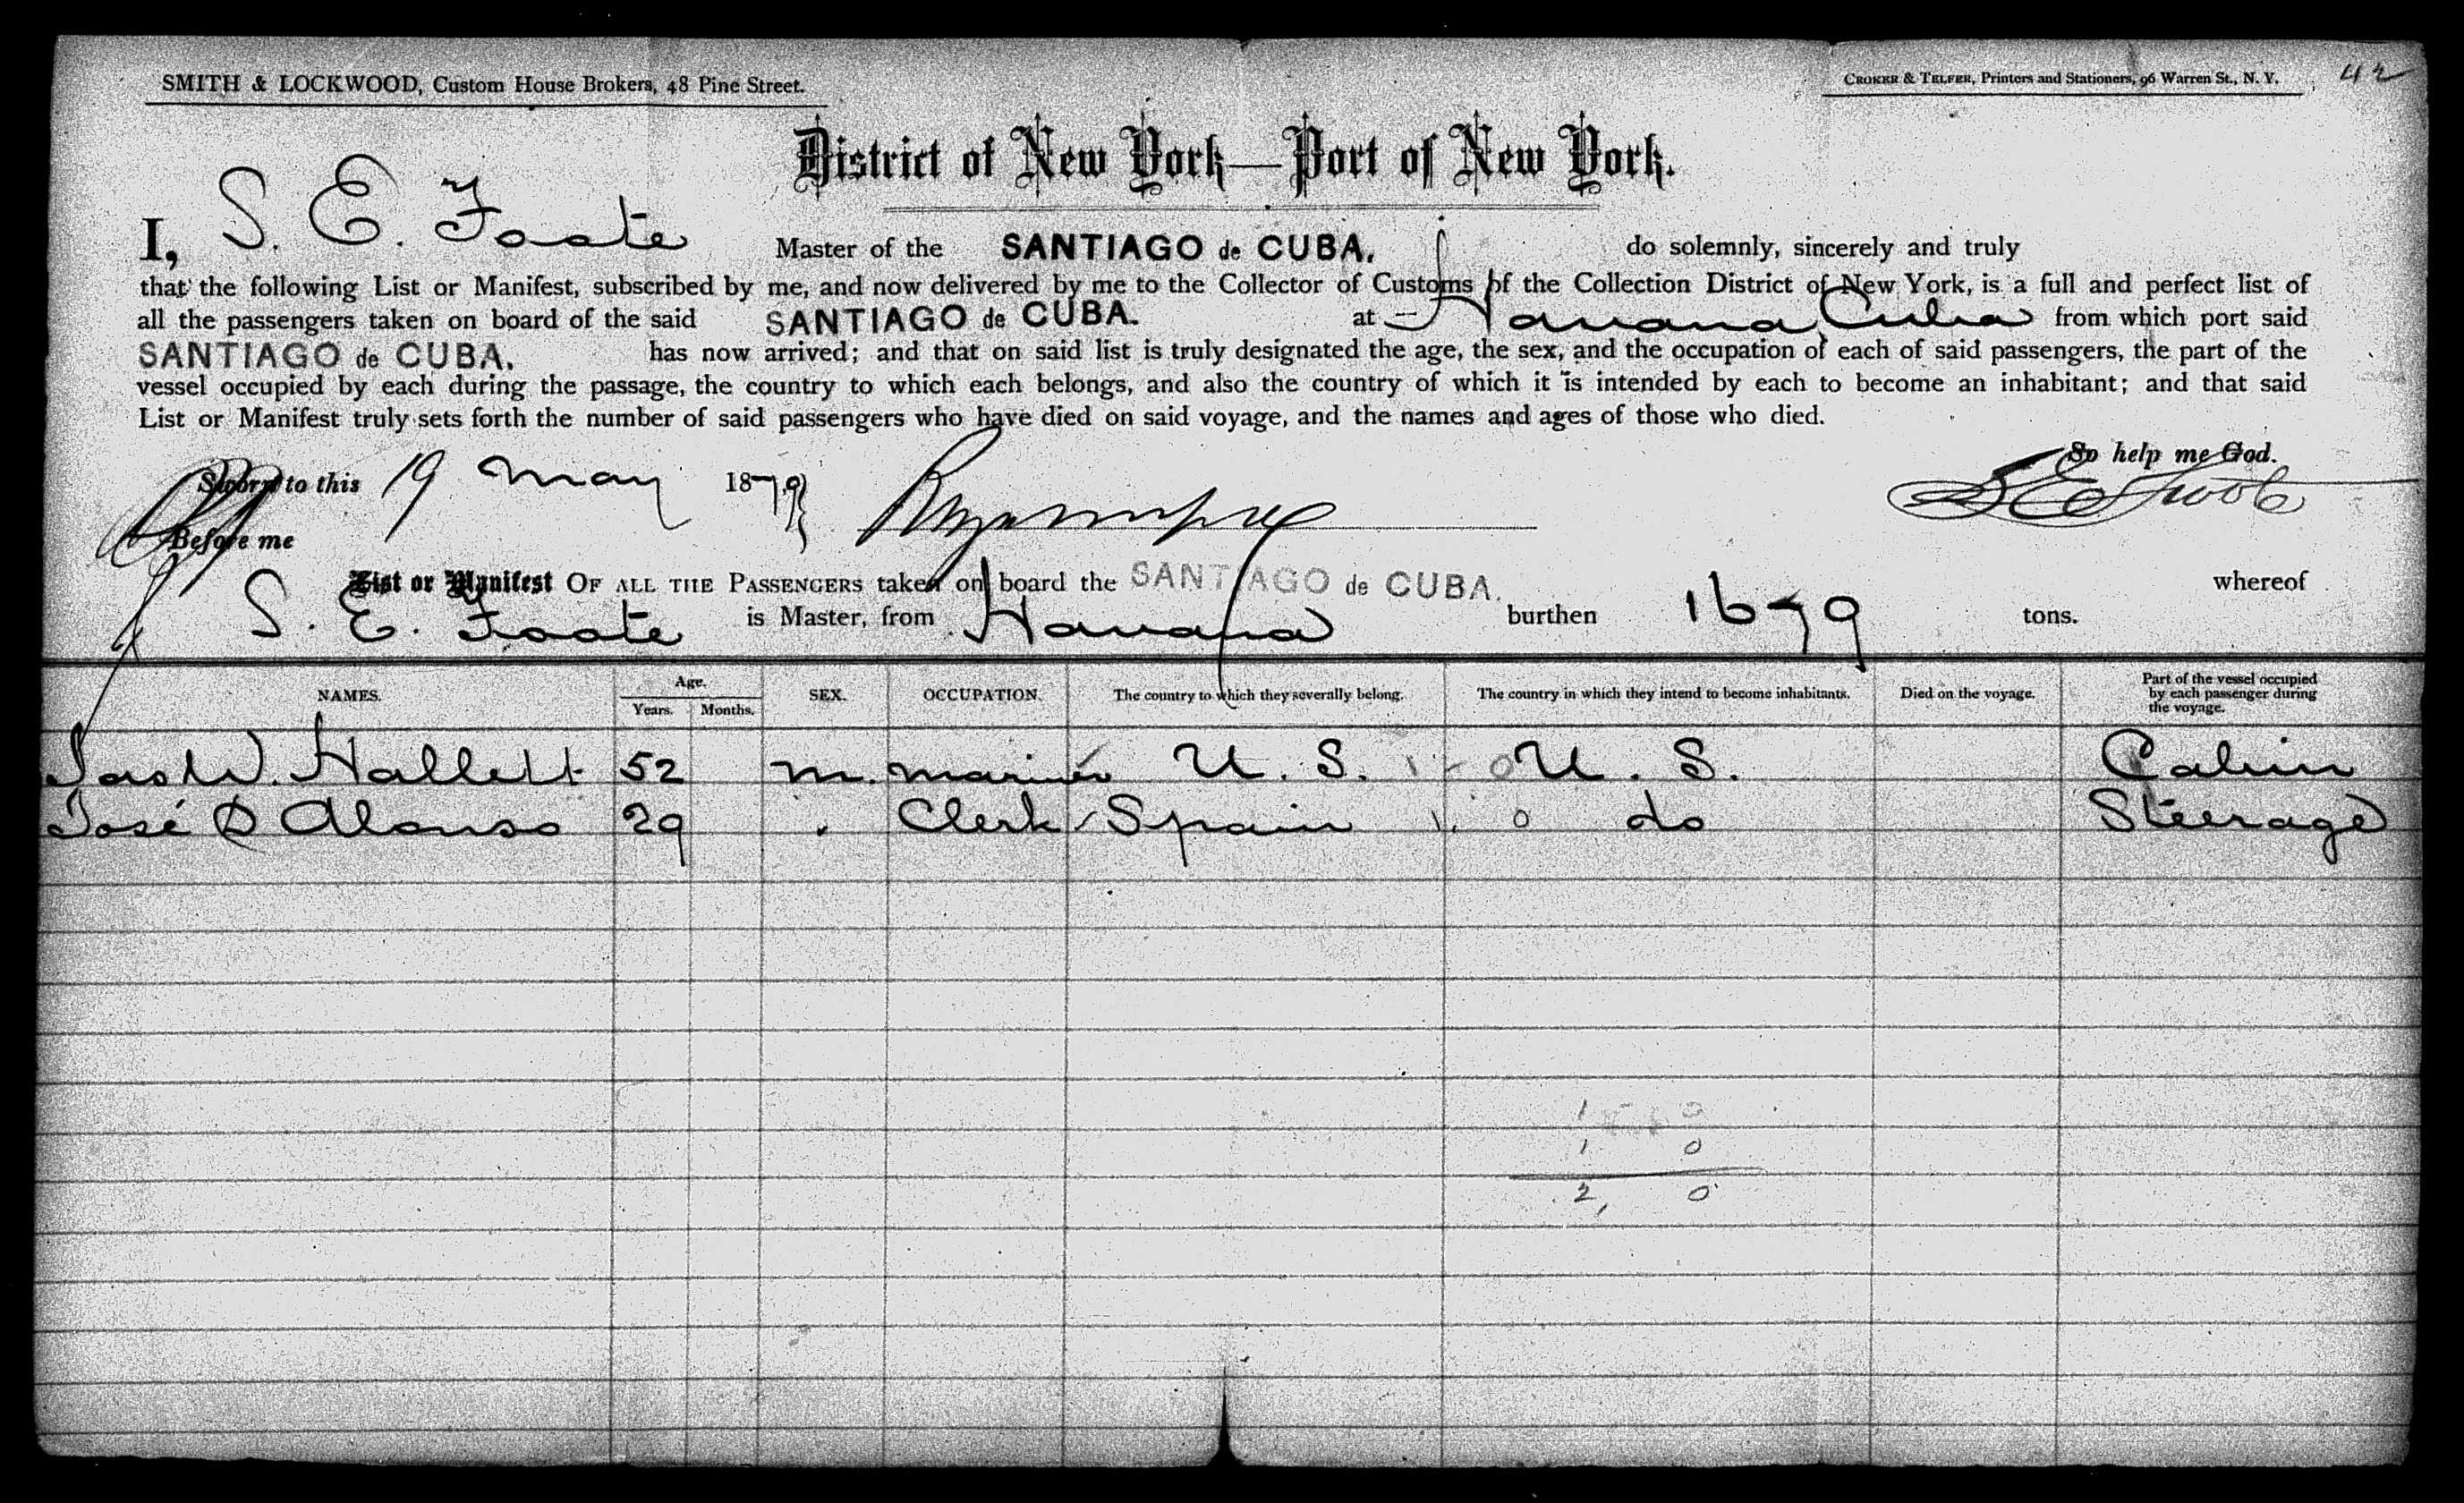 SMITH & LOCKWOOD, Custom House Brokers, 48 Pine Street.
CROKER & TELFER, Printers and Stationers, 96 Warren St., N. Y.
42
District of New York—Port of New York.
I, S. E. Foote Master of the SANTIAGO de CUBA. do solemnly, sincerely and truly
that the following List or Manifest, subscribed by me, and now delivered by me to the Collector of Customs of the Collection District of New York, is a full and perfect list of
all the passengers taken on board of the said SANTIAGO de CUBA. at Havana, Cuba from which port said
SANTIAGO de CUBA. has now arrived; and that on said list is truly designated the age, the sex, and the occupation of each of said passengers, the part of the
vessel occupied by each during the passage, the country to which each belongs, and also the country of which it is intended by each to become an inhabitant; and that said
List or Manifest truly sets forth the number of said passengers who have died on said voyage, and the names and ages of those who died.
So help me God.
Sworn to this 19 May 1879 S E Foote
Before me
List or Manifest OF ALL THE PASSENGERS taken on board the SANTIAGO de CUBA. whereof
S. E. Foote is Master, from Havana burthen 1679 tons.
NAMES. Age. Years. Months. SEX. OCCUPATION. The country to which they severally belong. The country in which they intend to become inhabitants. Died on the voyage. Part of the vessel occupied by each passenger during the voyage.
Jas W. Hallett 52 m. mariner U. S. 1 - 0 U. S. Cabin
José D Alonso 29 Clerk Spain 1. 0 do Steerage
1 - 0
1 0
2, 0